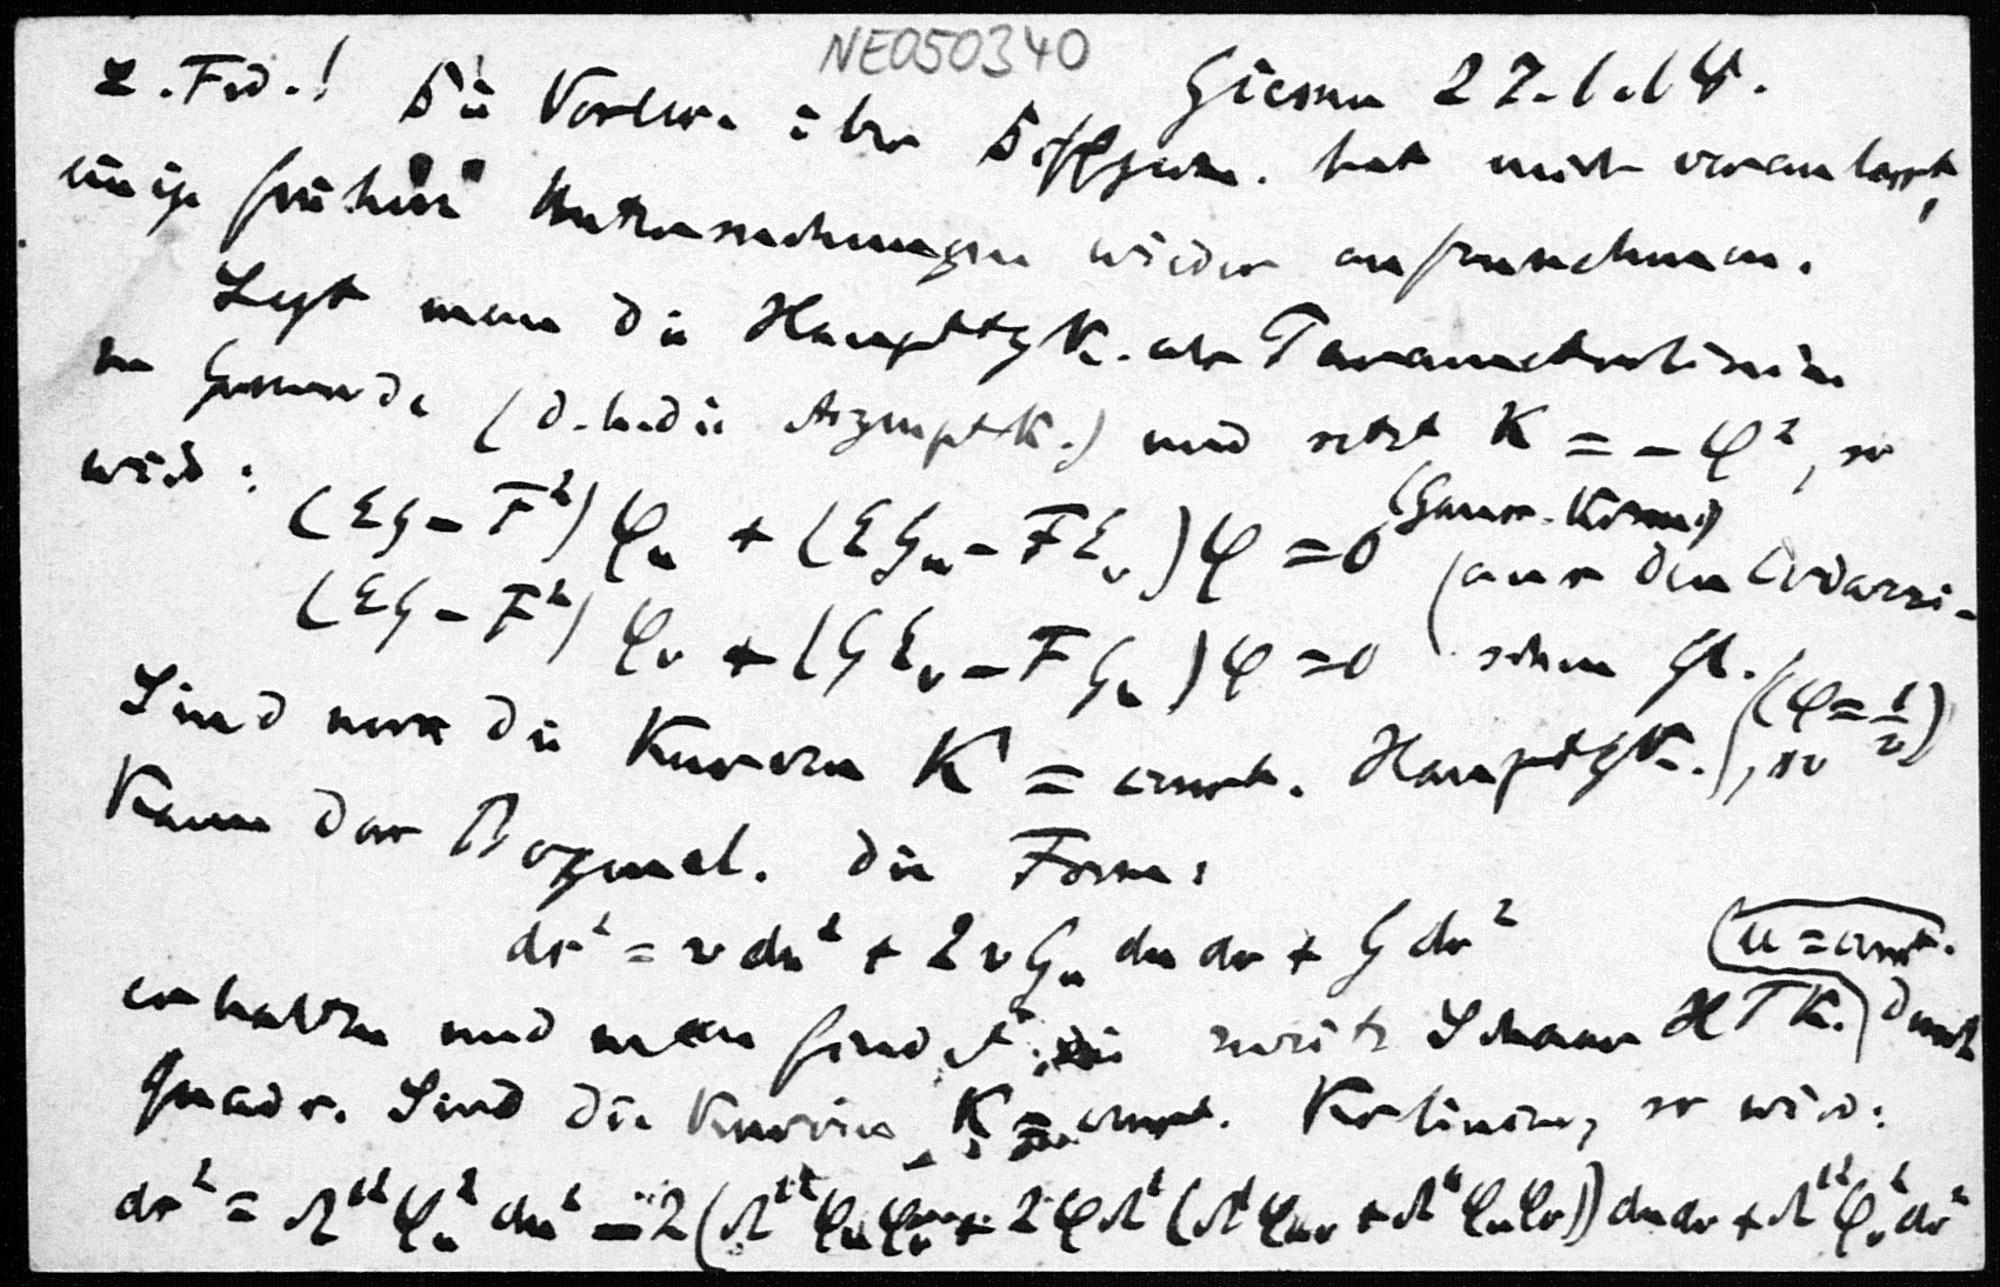 NE050340
L. Frd.! Giessen 27.1.14.
Die Vorles. über Diffgeom. hat mich veranlasst,
einige frühere Untersuchungen wieder aufzunehmen.
Legt man die Haupttgk. als Parameterlinien
zu Grunde (d.h. die Asymptk.) und setzt K = - φ², so
wird:
(EG - F²) φ_u + (E G_u - F E_v) φ = 0 (Gauss. Krümm.)
(EG - F²) φ_v + (G E_v - F G_u) φ = 0 (aus den Codazzi-
schen Gl.)
Sind nun die Kurven K = const. Haupttgk. (φ = 1/v), so
kann das Bogenel. die Form:
ds² = v du² + 2v G_u du dv + G dv²
(u = const.
erhalten und man findet die zweite Schaar HTK.) durch
Quadr. Sind die Kurven K = const. Krlinien, so wird:
ds² = Λ''² φ_u² du² - 2(Λ''² φ_u φ_v + 2φΛ'(Λ' φ_uv + Λ'' φ_u φ_v)) du dv + Λ''² φ_v² dv²